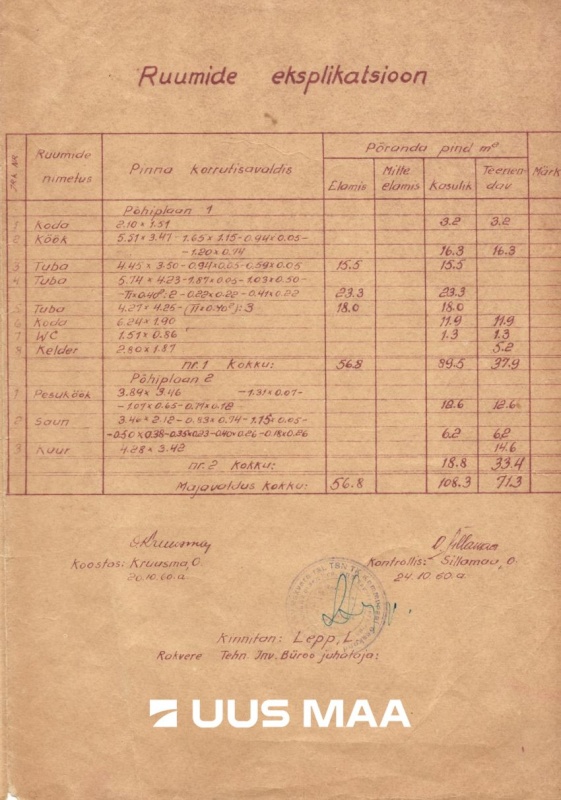 Ruumide eksplikatsioon
Ruumide nimetus
Pinna korrutisavaldis
Põranda pind m²
Elamis
Mitte elamis
Kasulik
Teenen-dav
Märk
Põhiplaan 1
1 Koda 2.10 x 1.51 3.2 3.2
2 Köök 5.51 x 3.47 -1.65 x 1.15 -0.94 x 0.05-
-1.20 x 0.74 16.3 16.3
3 Tuba 4.45 x 3.50 -0.94 x 0.05 -0.59 x 0.05 15.5 15.5
4 Tuba 5.74 x 4.23 -1.87 x 0.05 -1.03 x 0.50-
-0.22 x 0.22 -0.41 x 0.22 23.3 23.3
5 Tuba 4.27 x 4.25 18.0 18.0
6 Koda 6.24 x 1.90 11.9 11.9
7 WC 1.51 x 0.86 1.3 1.3
8 Kelder 2.80 x 1.87 5.2
nr. 1 kokku: 56.8 89.5 37.9
Põhiplaan 2
1 Pesuköök 3.84 x 3.46 -1.31 x 0.07-
-1.07 x 0.65 -0.77 x 0.18 12.6 12.6
2 Saun 3.46 x 2.12 -0.83 x 0.74 -1.15 x 0.05-
-0.50 x 0.38 -0.35 x 0.23 -0.40 x 0.26 -0.18 x 0.26 6.2 6.2
3 Kuur 4.28 x 3.42 14.6
nr. 2 kokku: 18.8 33.4
Majavaldus kokku: 56.8 108.3 71.3
Koostas: Kruusma, O.
20.10.60.a.
Kontrollis: Sillamaa, O.
24.10.60.a.
Kinnitan: Lepp, L.
Rakvere Tehn. Inv. Büroo juhataja:
UUS MAA